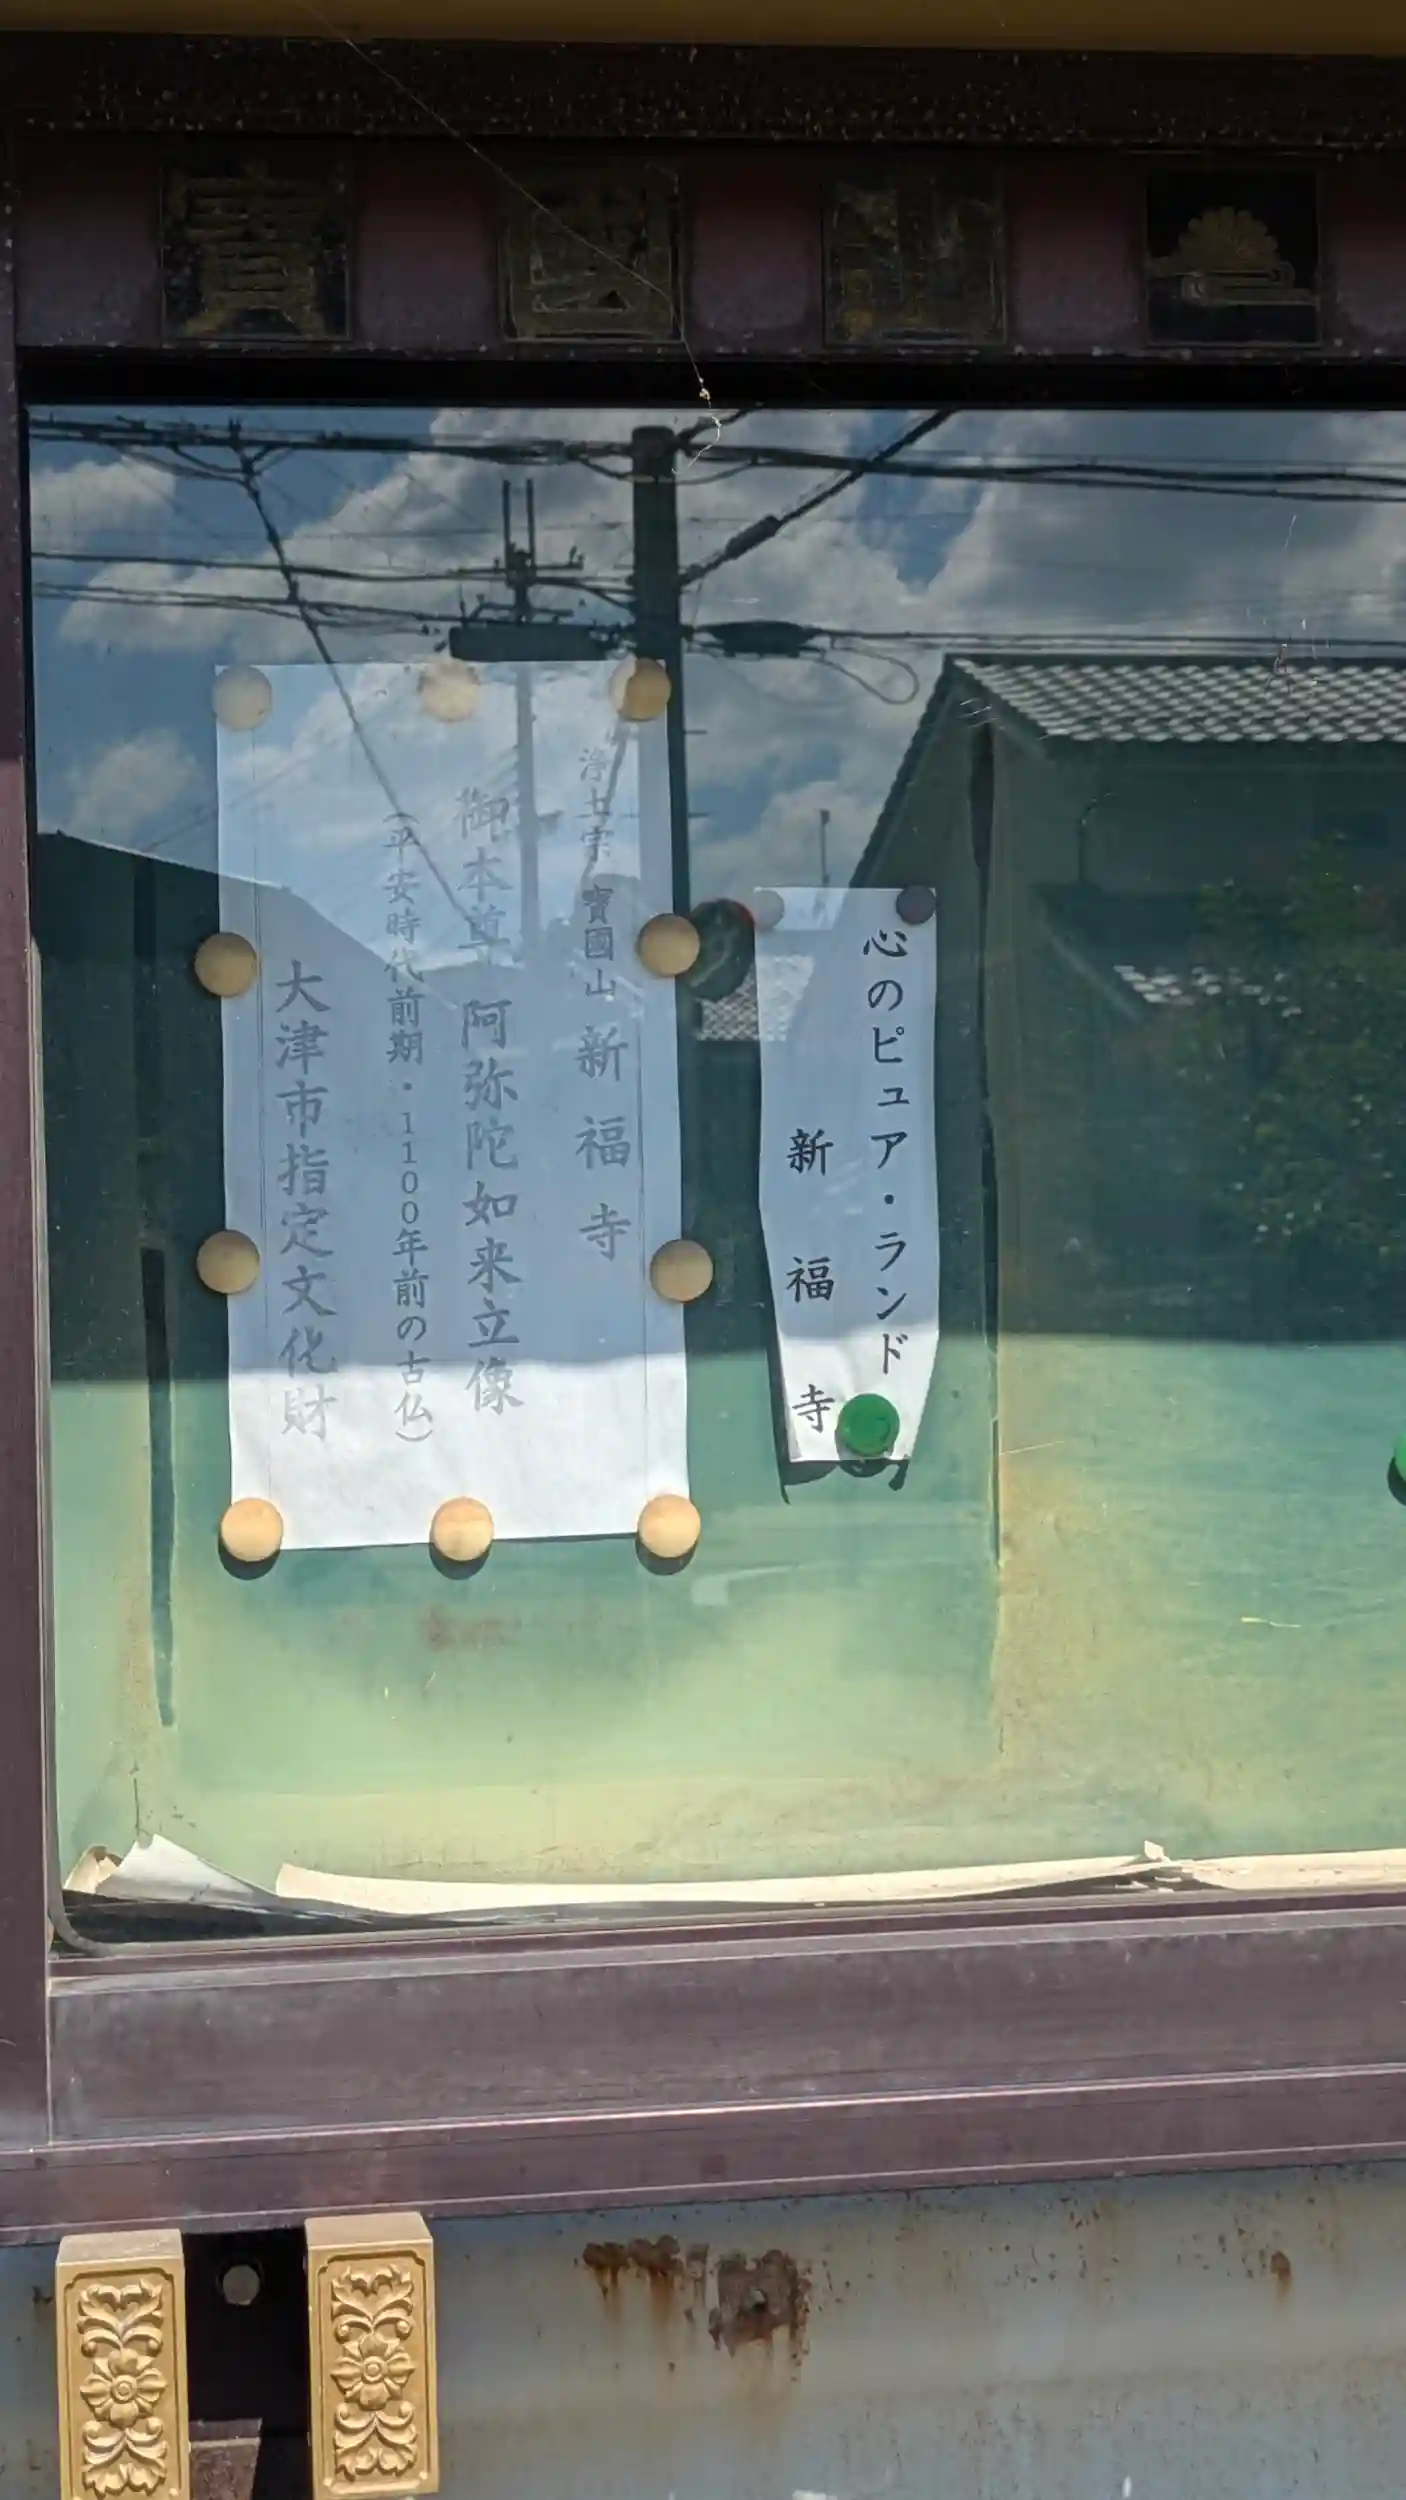 心のピュア・ランド
新福寺
浄土宗 寶國山 新福寺
御本尊 阿弥陀如来立像
（平安時代前期・1100年前の古仏）
大津市指定文化財